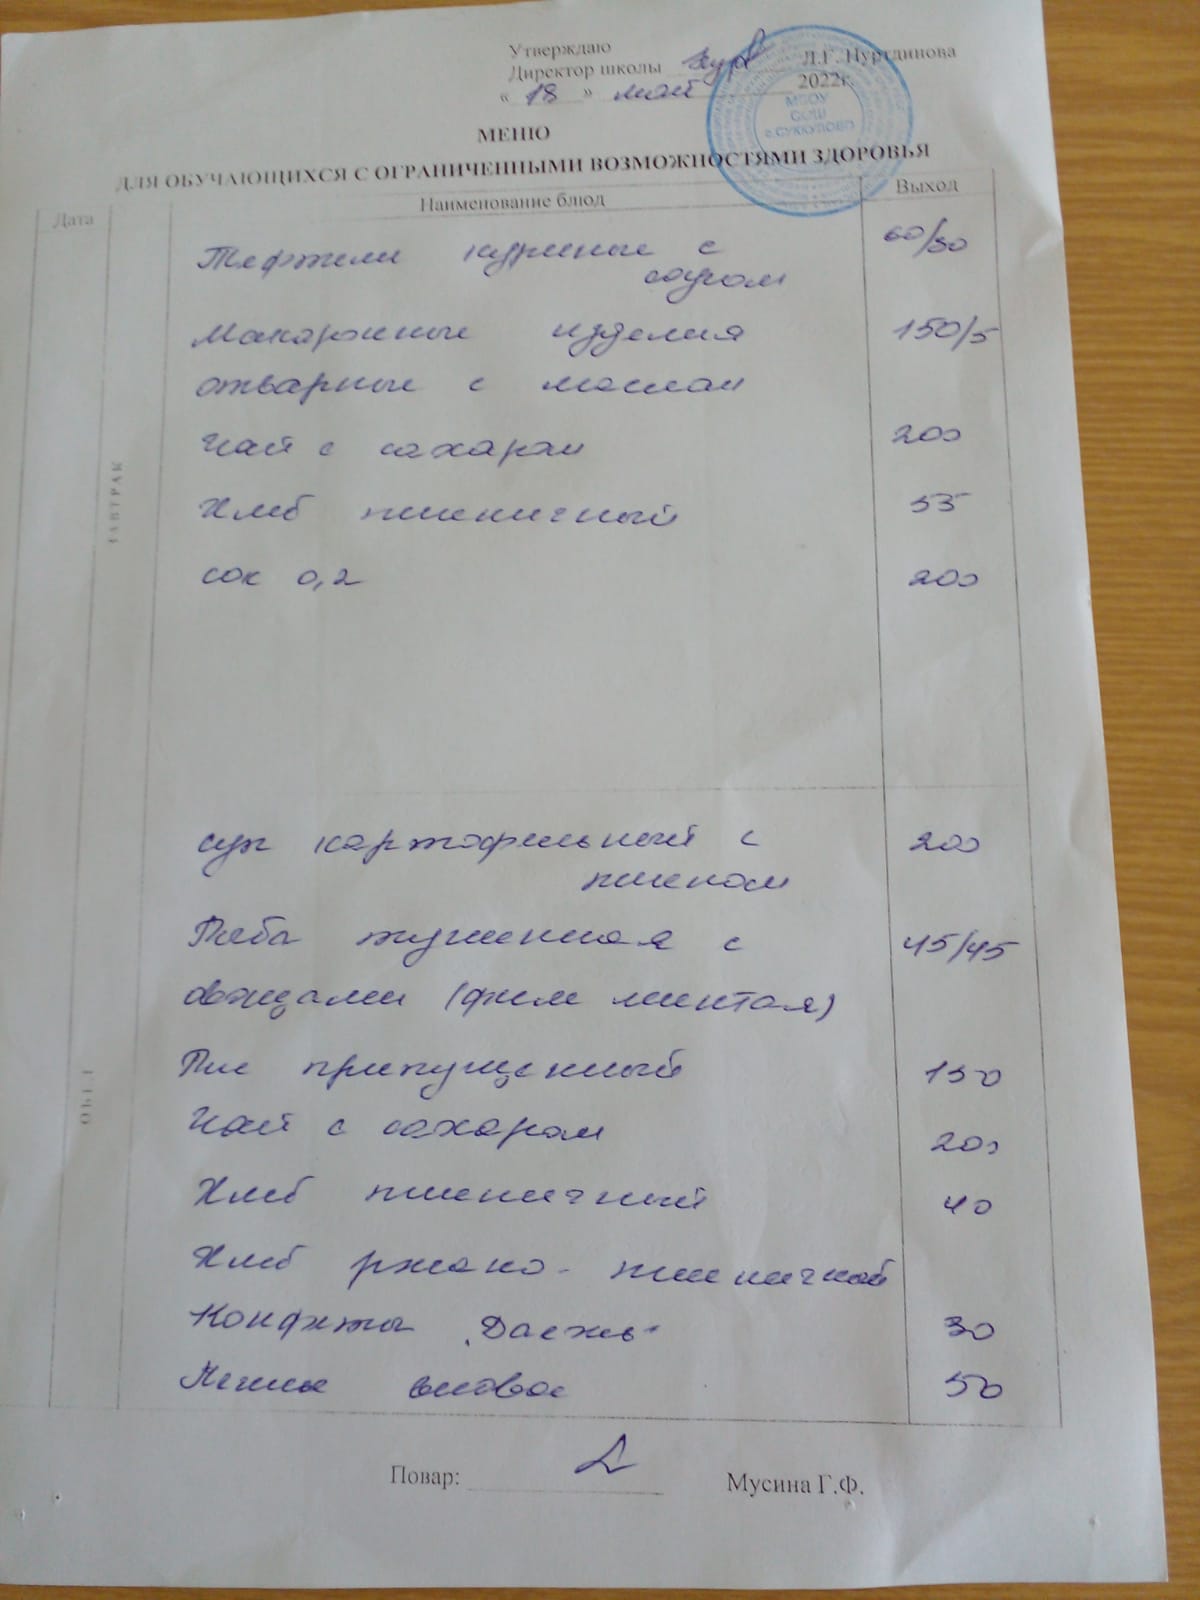 Утверждаю
Директор школы Л.Г. Нуртдинова
« 18 » май 2022г.
МБОУ
СОШ
с.СУККУЛОВО
МЕНЮ
ДЛЯ ОБУЧАЮЩИХСЯ С ОГРАНИЧЕННЫМИ ВОЗМОЖНОСТЯМИ ЗДОРОВЬЯ
Дата Наименование блюд Выход
ЗАВТРАК
Тефтели куриные с 60/30
соусом
Макаронные изделия 150/5
отварные с маслом
Чай с сахаром 200
Хлеб пшеничный 55
сок 0,2 200
ОБЕД
суп картофельный с 200
пшеном
Рыба тушенная с 45/45
овощами (филе минтая)
Рис припущенный 150
Чай с сахаром 200
Хлеб пшеничный 40
Хлеб ржано-пшеничной
Конфеты 30
Печенье 50
Повар: Мусина Г.Ф.